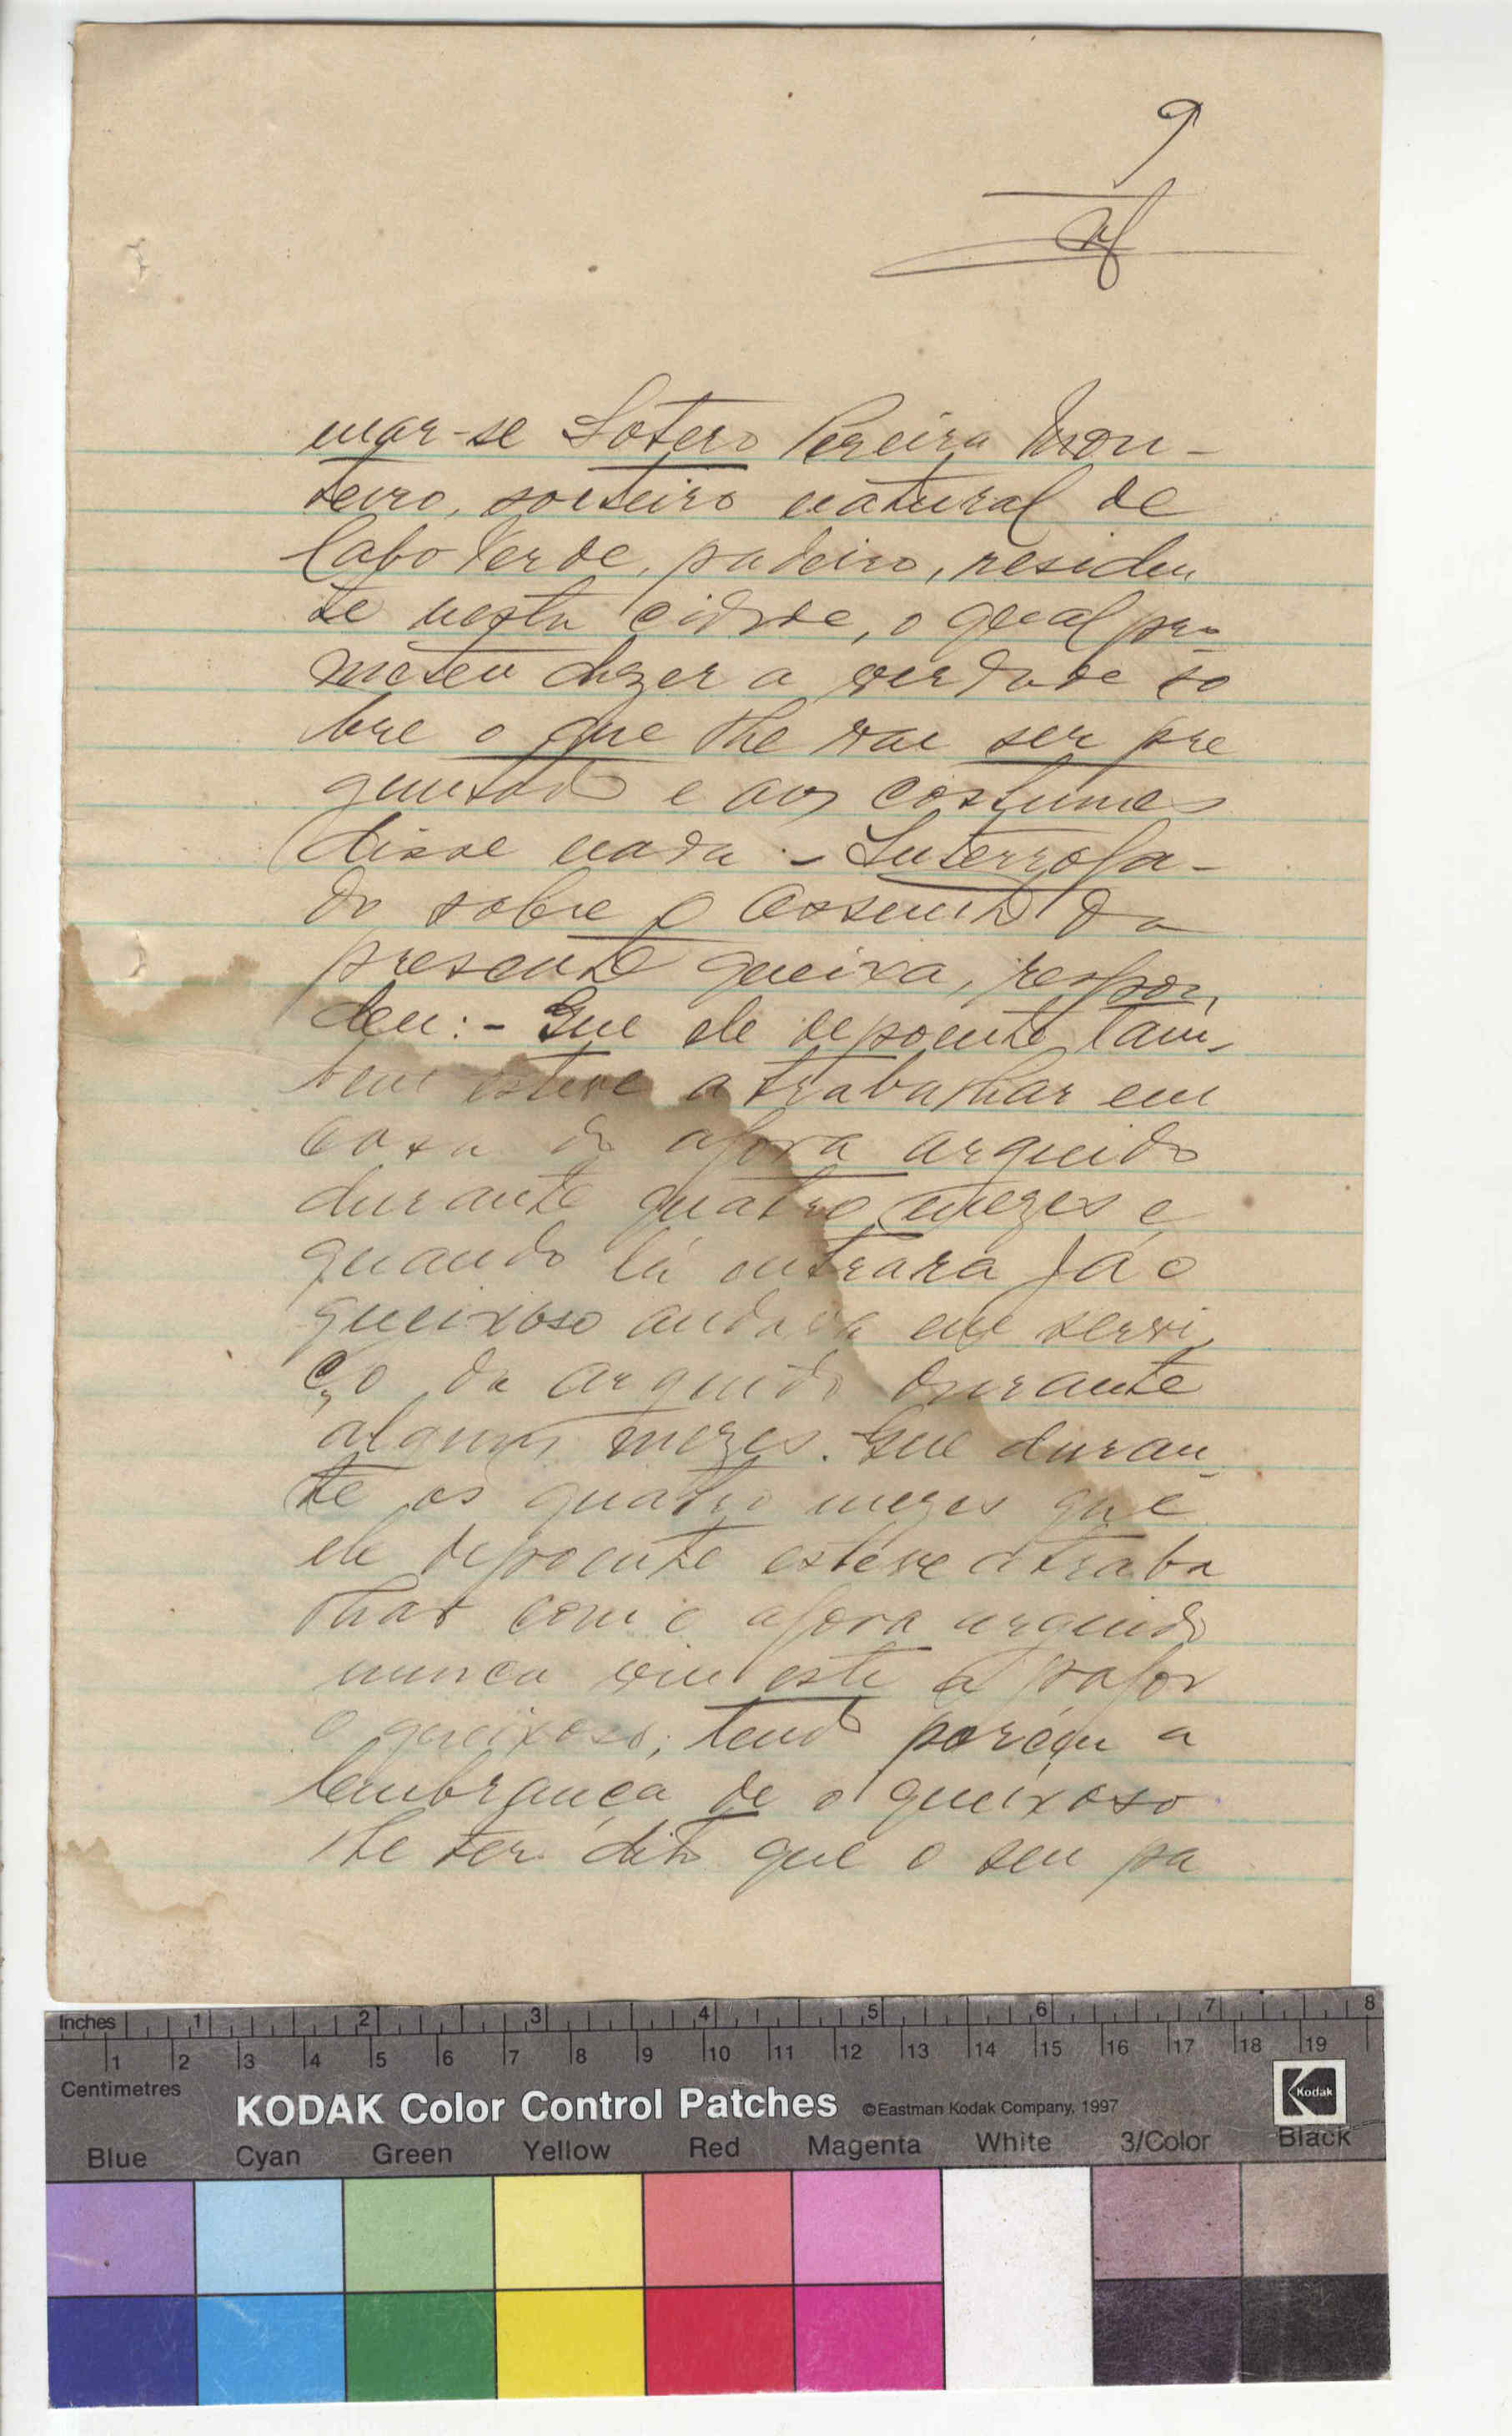 9
mar-se Sotero Pereira Mon-
teiro, solteiro natural de
Cabo Verde, padeiro, residen
te nesta cidade, o qual pro
meteu dizer a verdade so
bre o que lhe vae ser pre
guntado e aos costumes
disse nada. - Interroga-
do sobre o assunto da
presente queixa, respon,
deu: - Que ele depoente tam,
bem esteve a trabalhar em
casa do agora arguido
durante quatro mezes e
quando lá entrara já o
queixoso andava em servi,
ço do arguido durante
alguns mezes. Que duran,
te os quatro mezes que
ele depoente esteve a traba
lhar com o agora arguido
nunca viu este a pagar
o queixoso; tendo porém a
lembrança de o queixoso
lhe ter dito que o seu pa
Inches 1 2 3 4 5 6 7 8
1 2 3 4 5 6 7 8 9 10 11 12 13 14 15 16 17 18 19
Centimetres
KODAK Color Control Patches ©Eastman Kodak Company, 1997 Kodak
Blue Cyan Green Yellow Red Magenta White 3/Color Black